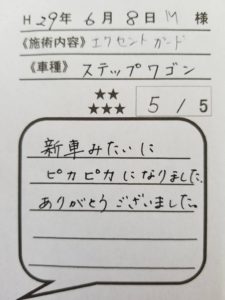 H 29年 6月 8日 M 様
《施術内容》エクセントガード
《車種》ステップワゴン
★★
★★★ 5 / 5
新車みたいに
ピカピカになりました。
ありがとうございました。